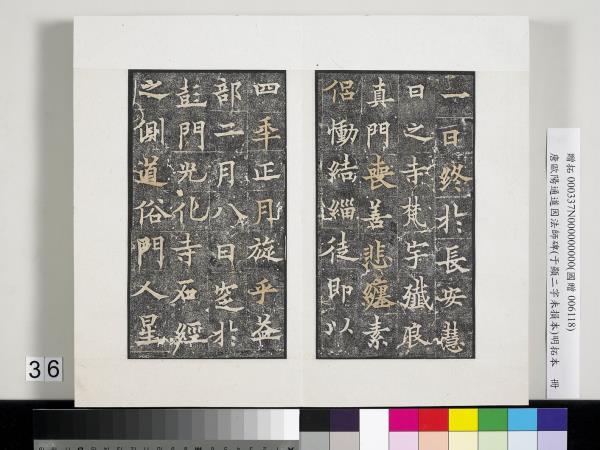 一日終於長安慧
日之寺梵宇殲良
真門喪善悲纏素
侶慟結緇徒即以
四年正月旋乎益
部二月八日窆於
彭門光化寺石經
之側道俗門人星
贈拓 000337N000000000(國贈 006118)
唐歐陽通道因法師碑(于顯二字未損本)明拓本 冊
36